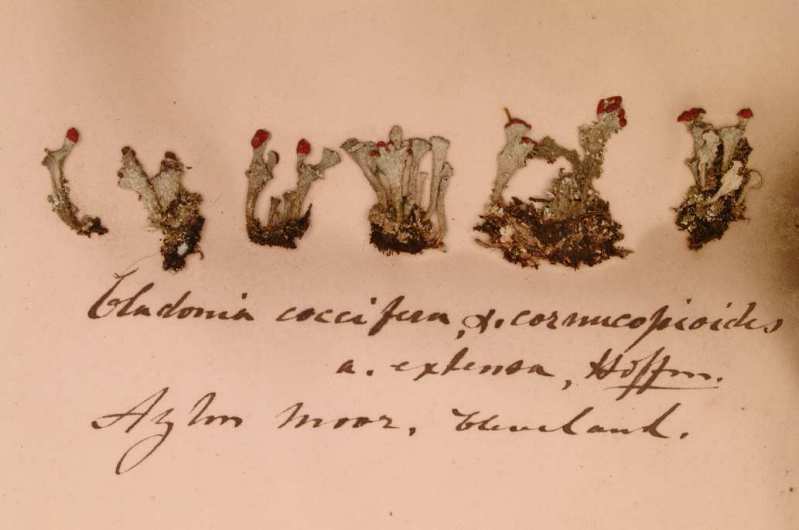 Cladonia coccifera, α. cornucopioides
a. extensa, Hoffm.
Ayton Moor, Cleveland.